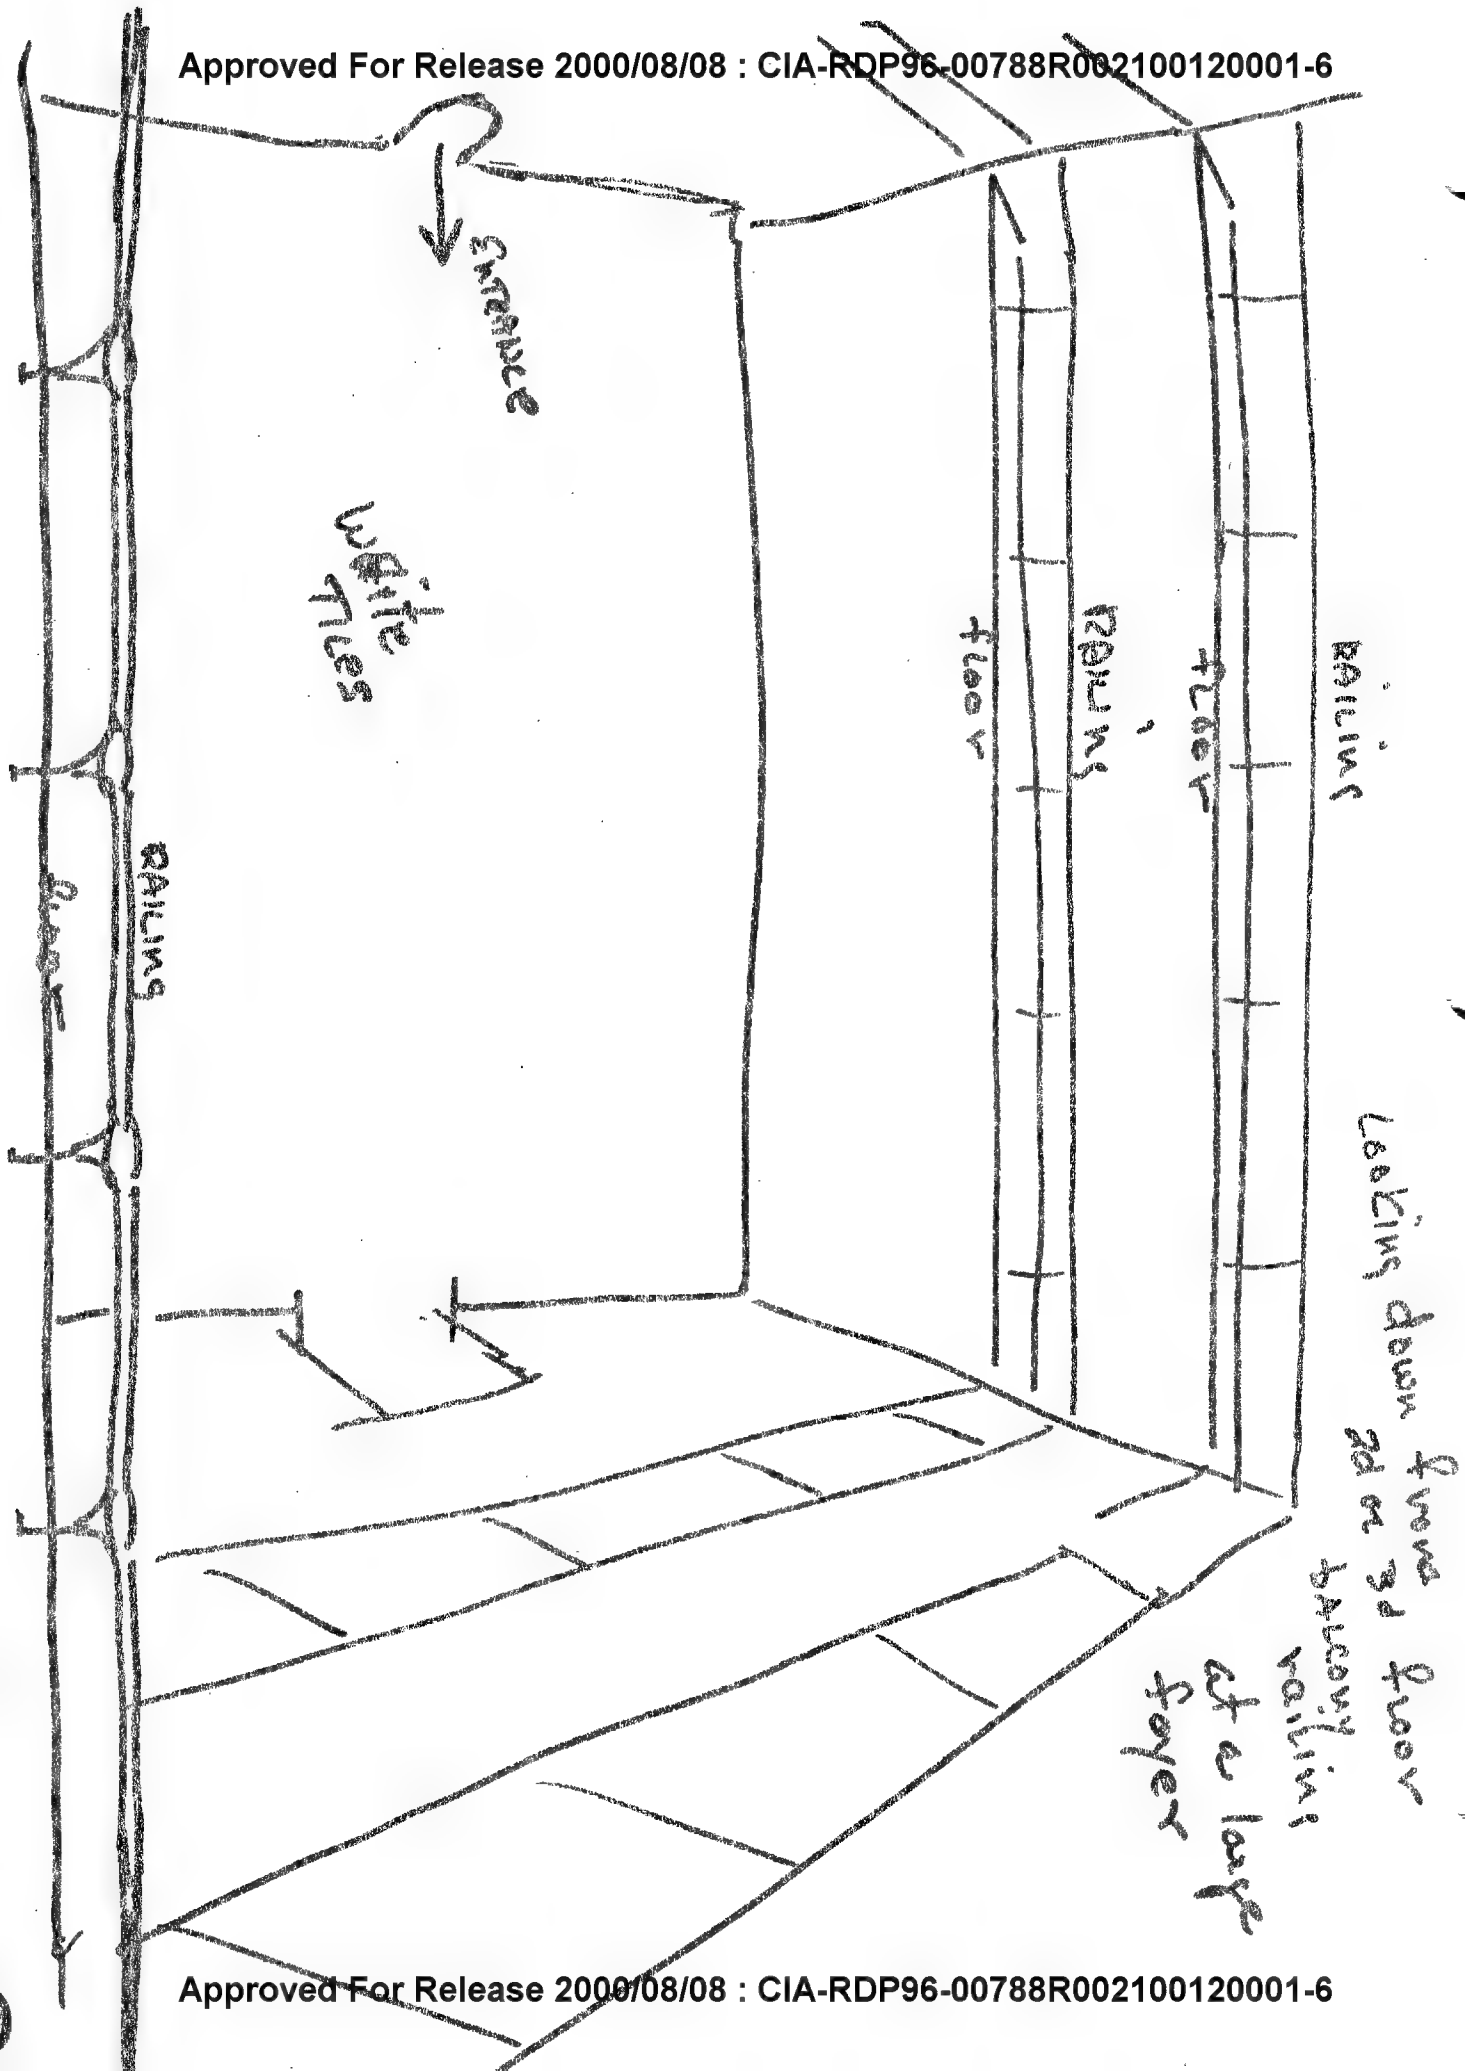 Approved For Release 2000/08/08 : CIA-RDP96-00788R002100120001-6
Looking down from
2d or 3d floor
BALCONY
railing
at a large
foyer
RAILING
floor
RAILING
floor
ENTRANCE
White
TILES
RAILING
floor
Approved For Release 2000/08/08 : CIA-RDP96-00788R002100120001-6